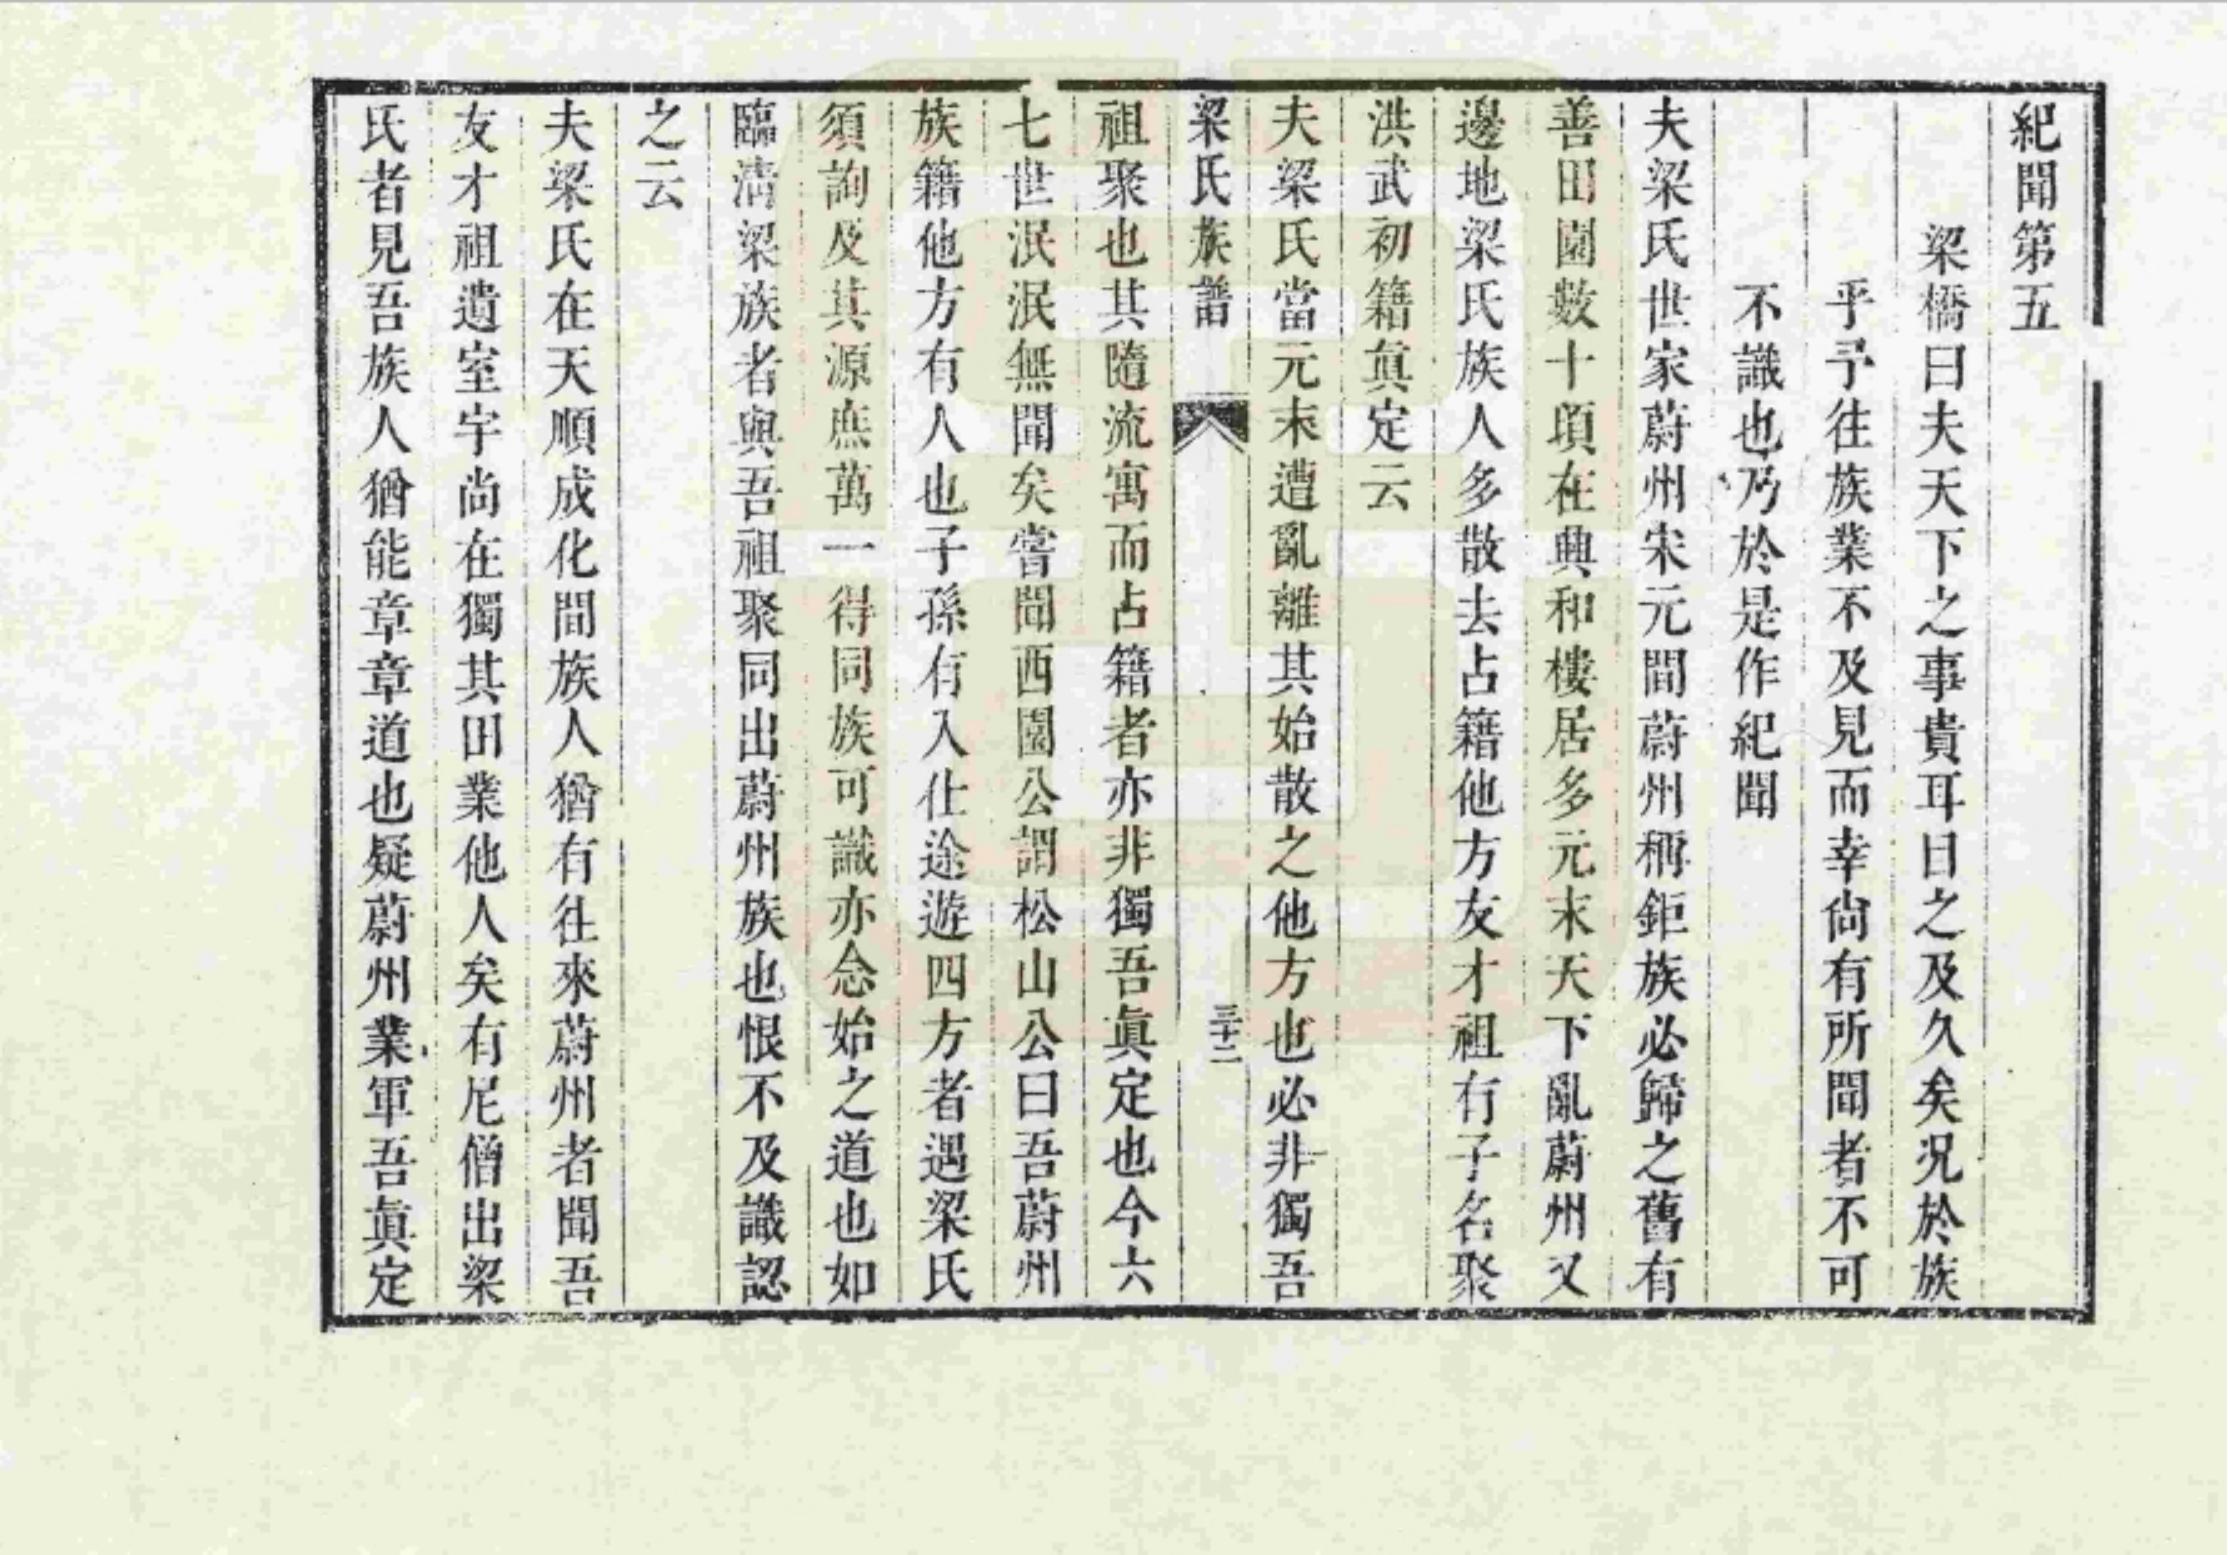 紀聞第五
梁橋曰夫天下之事貴耳日之及久矣况於族
乎予往族業不及見而幸尙有所聞者不可
不識也乃於是作紀聞
夫梁氏世家蔚州宋元間蔚州稱鉅族必歸之舊有
善田園數十頃在典和樓居多元末天下亂蔚州又
邊地梁氏族人多散去占籍他方友才祖有子名聚
洪武初籍眞定云
夫梁氏當元末遭亂離其始散之他方也必非獨吾
梁氏族譜 三十二
祖聚也其隨流寓而占籍者亦非獨吾眞定也今六
七世泯泯無聞矣嘗聞西園公謂松山公曰吾蔚州
族籍他方有人也子孫有入仕途遊四方者遇梁氏
須詢及其源庶萬一得同族可識亦念始之道也如
臨淸梁族者與吾祖聚同出蔚州族也恨不及識認
之云
夫梁氏在天順成化間族人猶有往來蔚州者聞吾
友才祖遺室宇尚在獨其田業他人矣有尼僧出梁
氏者見吾族人猶能章章道也疑蔚州業軍吾眞定